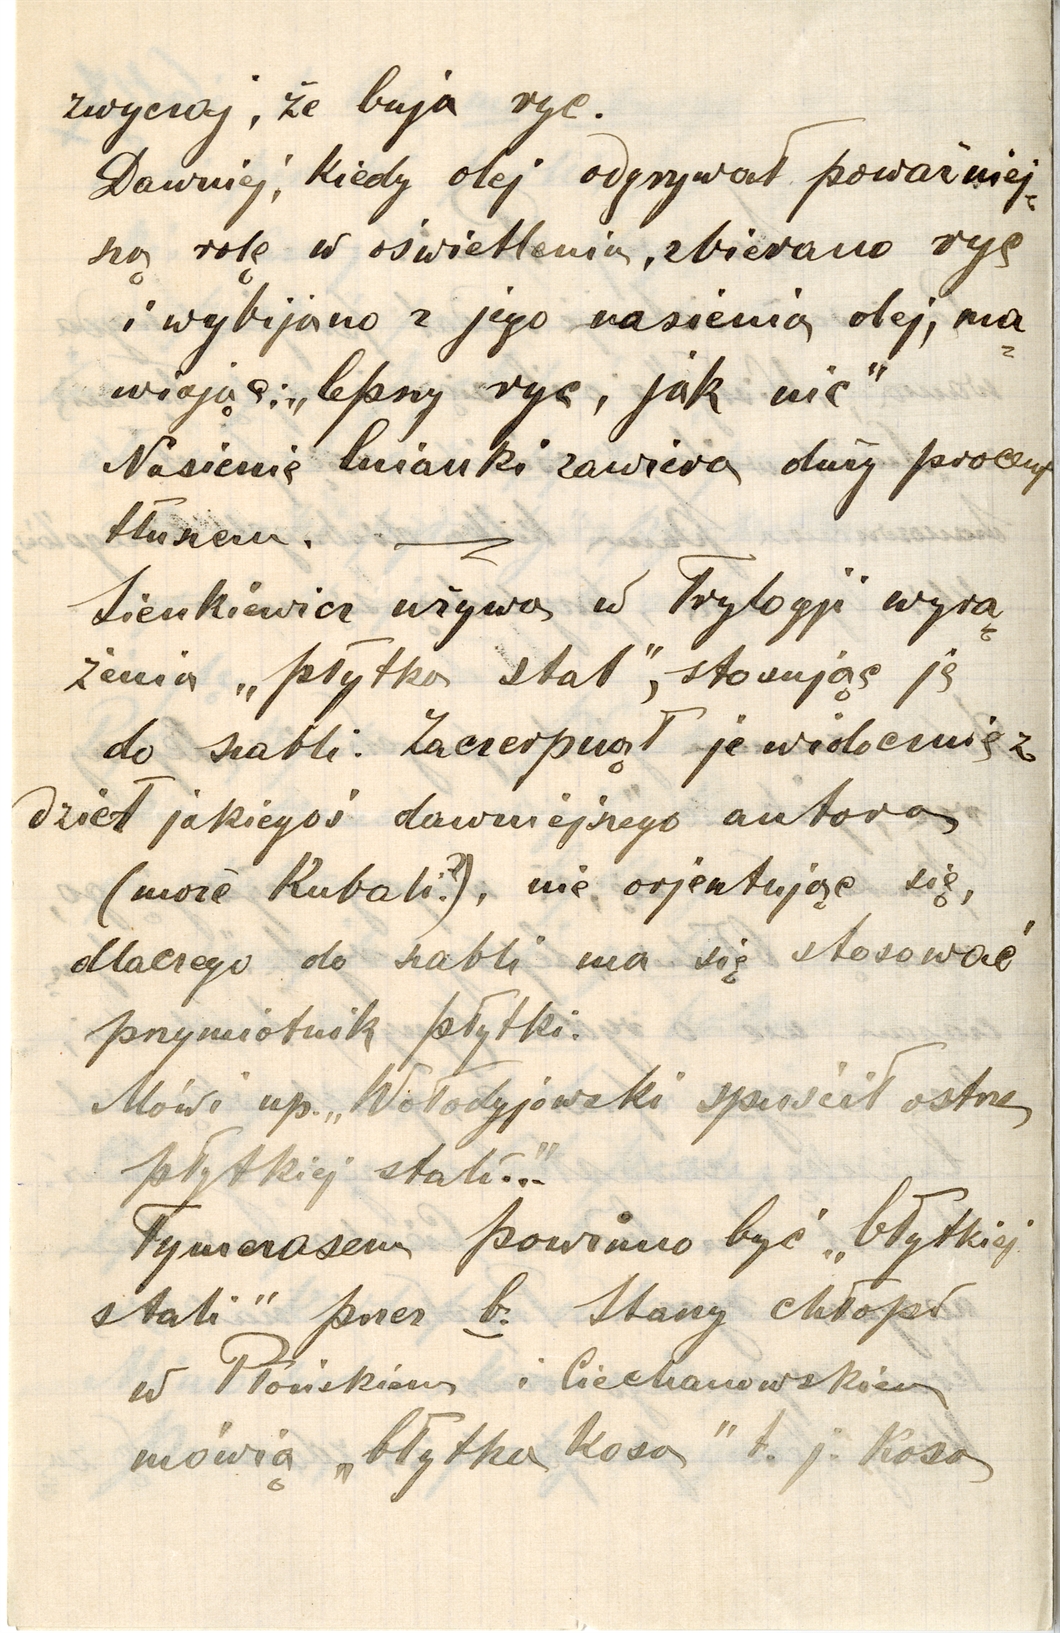 zwyczaj, że buja ryc.
Dawniej, kiedy olej odgrywał poważniej-
szą rolę w oświetleniu, zbierano ryc
i wybijano z jego nasienia olej, ma-
wiając: „lepszy ryc, jak nic”
Nasienie lnianki zawiera duży procent
tłuszczu.
Sienkiewicz używa w Trylogji wyra-
żenia „płytka stal”, stosując ję
do szabli. Zaczerpnął je widocznie z
dzieł jakiegoś dawniejszego autora
(może Kubali?), nie orjentując się,
dlaczego do szabli ma się stosować
przymiotnik płytki.
Mówi np. „Wołodyjowski spuścił ostrze
płytkiej stali...”
Tymczasem powinno być „błytkiej
stali” przez b. Starzy chłopi
w Płońskiem i Ciechanowskiem
mówią „błytka kosa” t. j. kosa